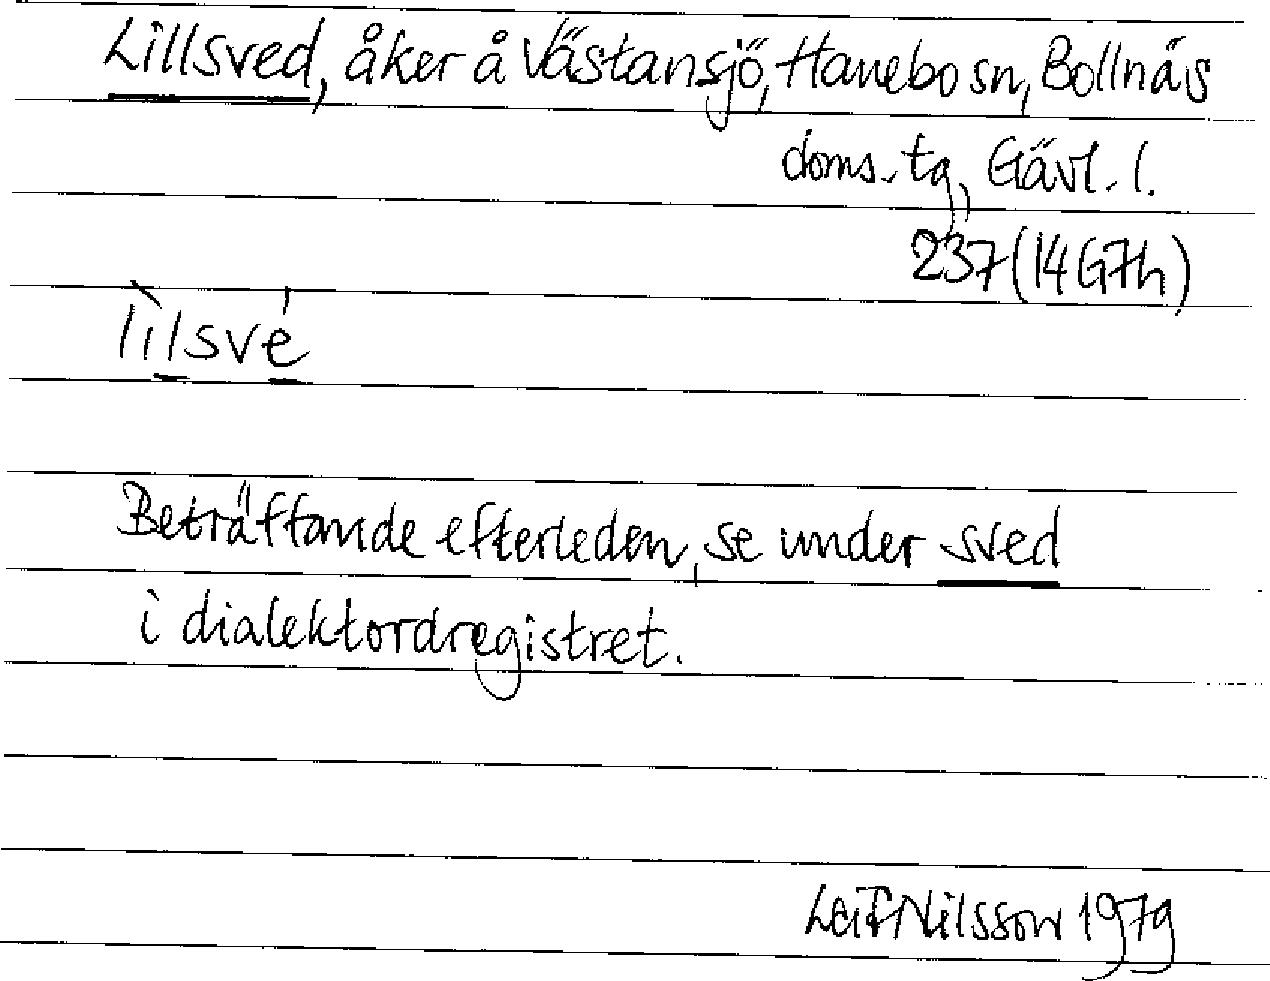 Lillsved, åker å Västansjö, Hanebo sn, Bollnäs
doms. tg, Gävl. l.
237 (14G7h)
lìlsvé
Beträffande efterleden, se under sved
i dialektordregistret.
Leif Nilsson 1979